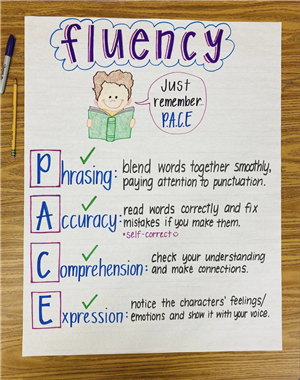 fluency
Just
remember
P.A.C.E
Phrasing: blend words together smoothly,
paying attention to punctuation.
Accuracy: read words correctly and fix
mistakes if you make them.
*self-correct
Comprehension: check your understanding
and make connections.
Expression: notice the characters' feelings/
emotions and show it with your voice.